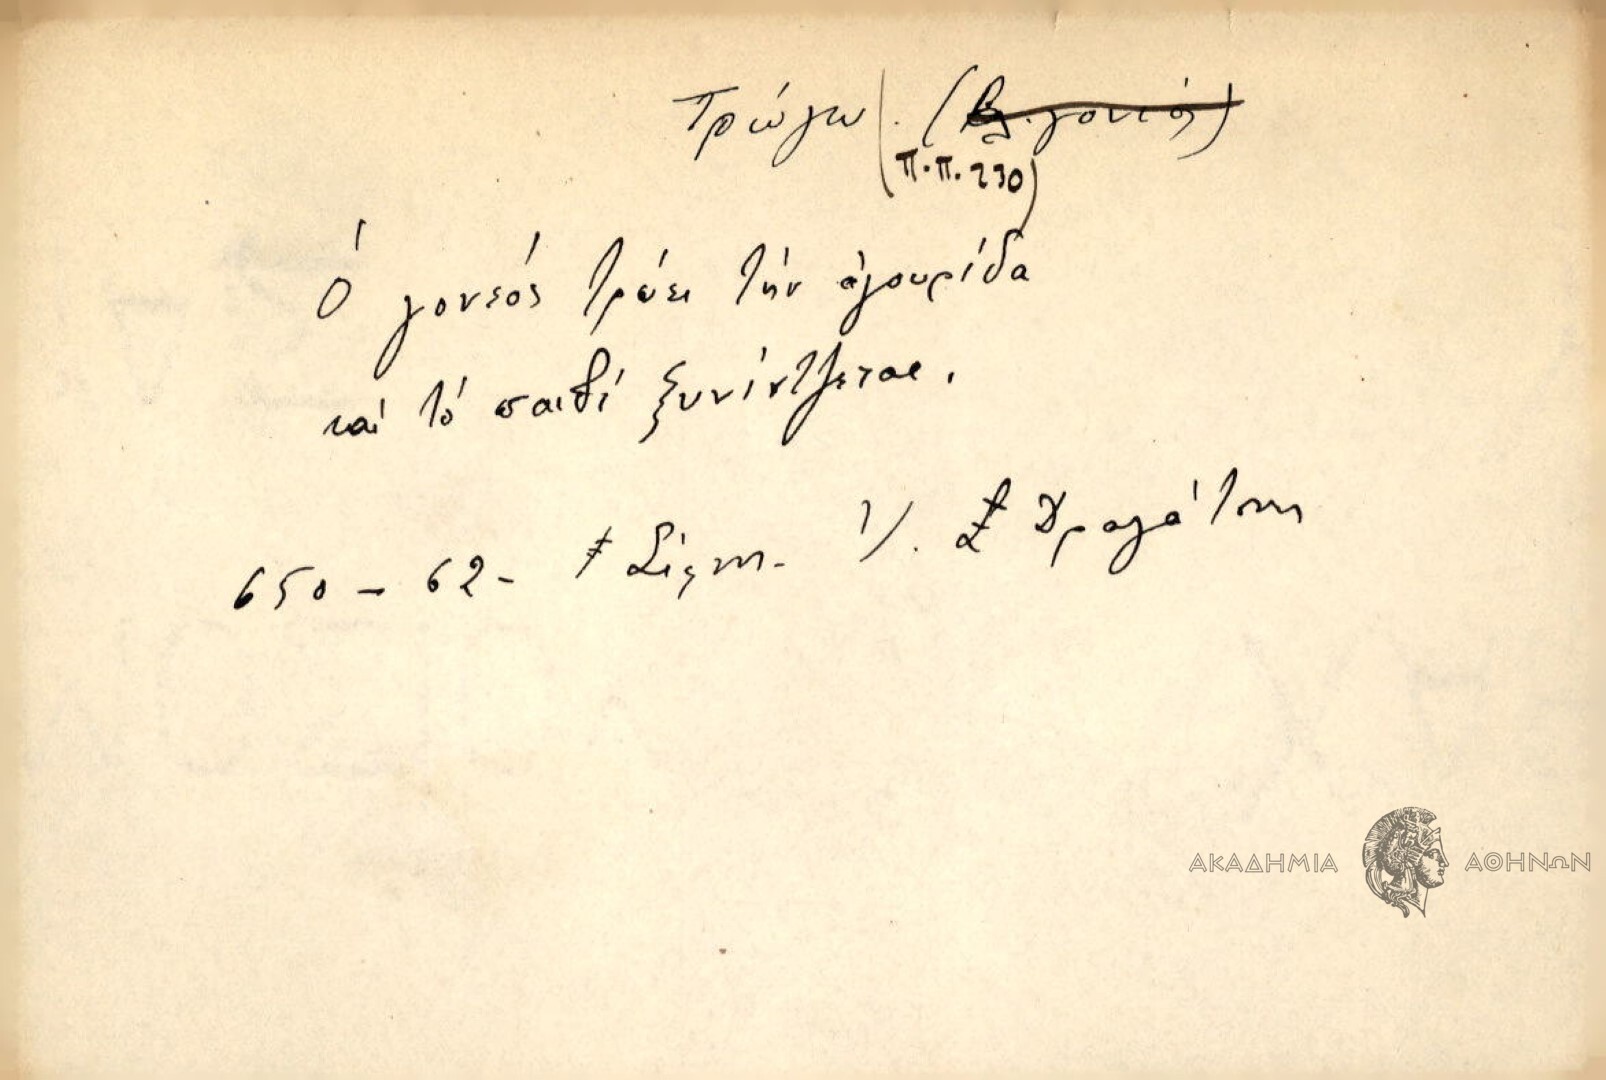 Τρώγω . (βλ. γονιός)
(π.π. 230)
Ὁ γονεός τρώει τήν ἀγουρίδα
καί τό παιδί ξυνίντζεται.
650 - 62 - Σίφν. Ι. Δραγάτσης
ΑΚΑΔΗΜΙΑ ΑΘΗΝΩΝ